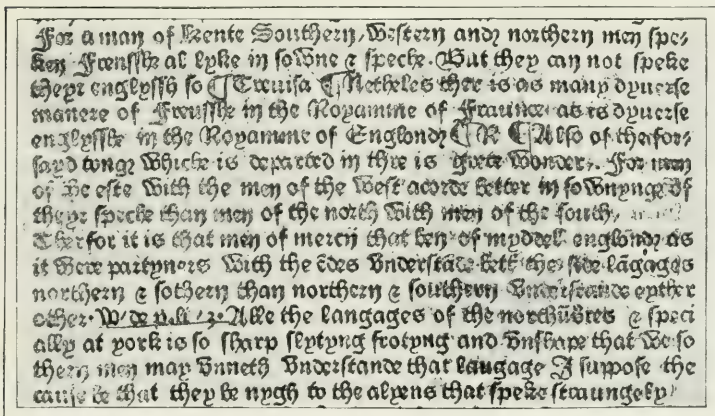 For a man of Kente Southern, Western and northern men spe-
ken Frenssh al lyke in sowne & speche. But they can not speke
theyr englyssh so ¶ Treuisa ¶ Netheles ther is as many dyuerse
manere of Frenssh in the Royamme of Fraunce as is dyuerse
englyssh in the Royamme of Englond ¶ R ¶ Also of the for-
sayd tong whiche is departed in thre is grete wonder. For men
of the este with the men of the west acorde better in sownyng of
theyr speche than men of the north with men of the south,
Therfor it is that men of mercij that ben of myddel englond as
it were partyners with the endes vnderstande bett the side langages
northern & sothern than northern & southern vnderstande eyther
other. W de pon li 3. Alle the langages of the northumbres & speci
ally at york is so sharp slytyng frotyng and vnshape that we so
thern men may vnneth vnderstande that langage I suppose the
cause be that they be nygh to the alyens that speke straungely